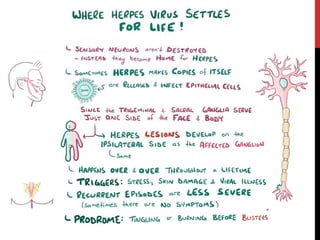 WHERE HERPES VIRUS SETTLES
FOR LIFE!
SENSORY NEURONS aren't DESTROYED
- INSTEAD they become HOME for HERPES
SOMETIMES HERPES MAKES COPIES of ITSELF
are RELEASED & INFECT EPITHELIAL CELLS
SINCE the TRIGEMINAL & SACRAL GANGLIA SERVE
JUST ONE SIDE of the FACE & BODY
HERPES LESIONS DEVELOP on the
IPSILATERAL SIDE as the AFFECTED GANGLION
Same
HAPPENS OVER & OVER THROUGHOUT a LIFETIME
TRIGGERS: STRESS, SKIN DAMAGE & VIRAL ILLNESS
RECURRENT EPISODES are LESS SEVERE
(Sometimes there are NO SYMPTOMS)
PRODROME: TINGLING or BURNING BEFORE BLISTERS